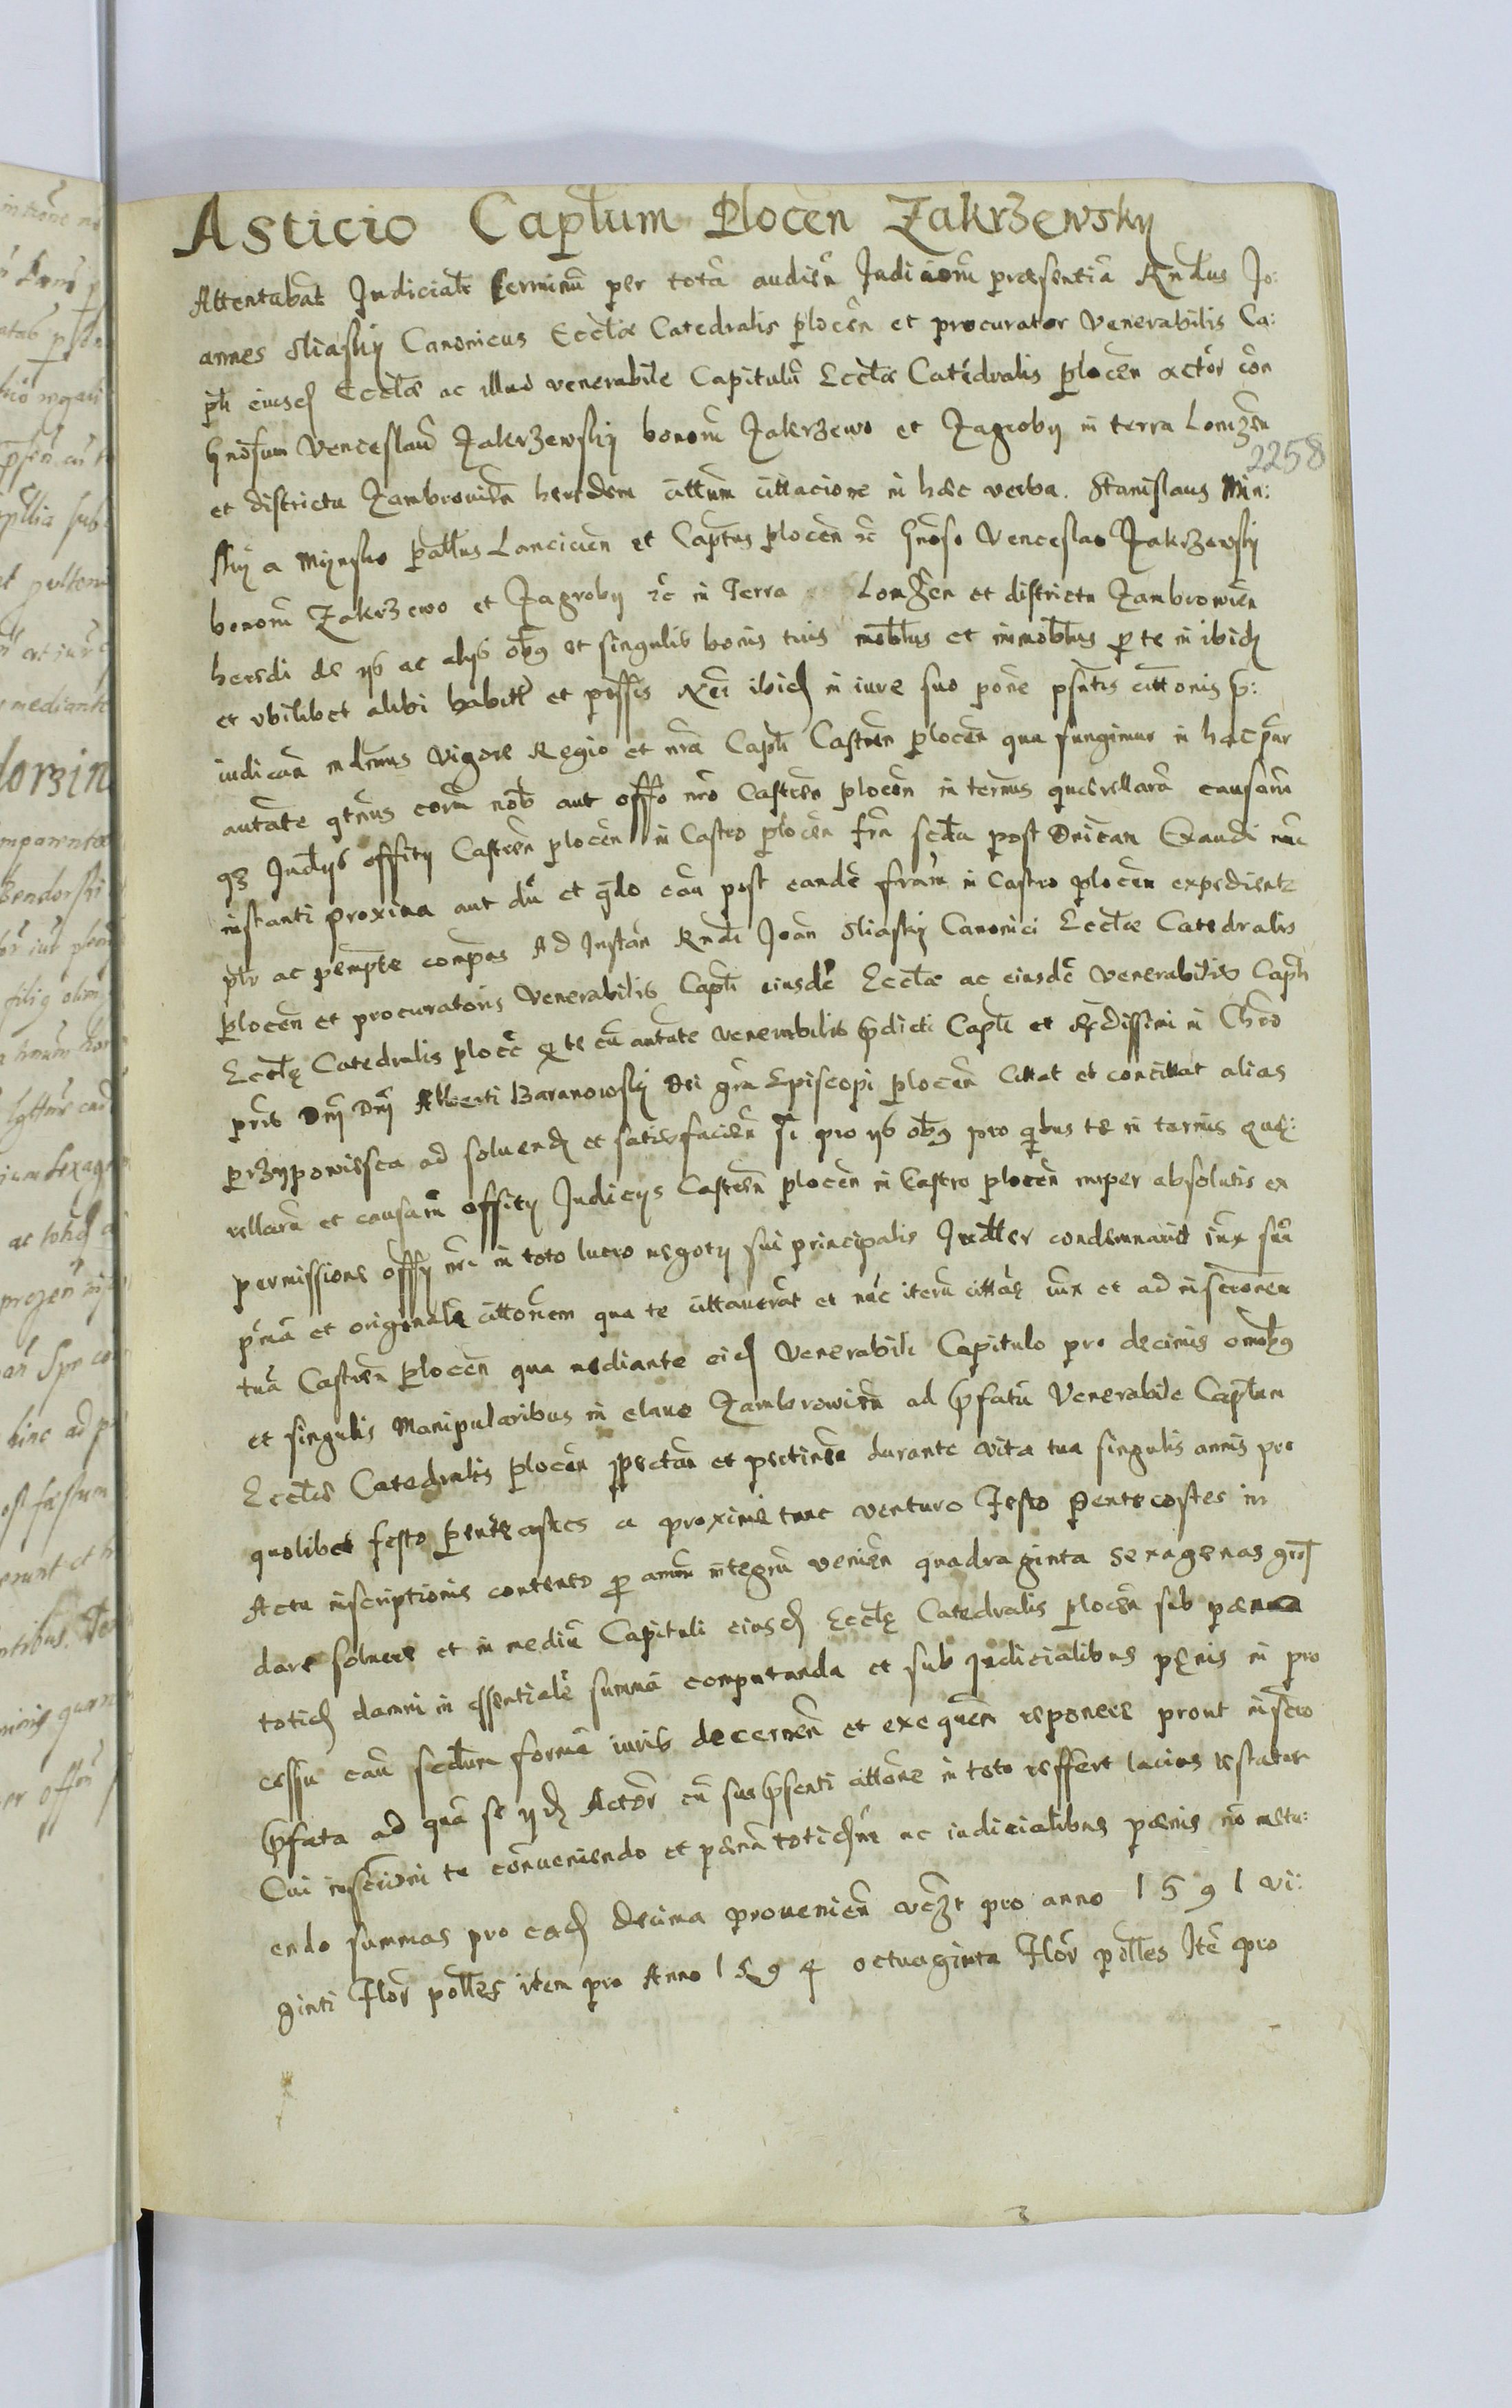 Asticio Captlum Plocen Zakrzewsky
Attentabat Judicialr terminu per tota audien Judicioru præsentia Rndus Jo:
annes Sliasky Canonicus Ecctæ Catedralis plocen et procurator Venerabilis Ca:
pli eiusd Ecctæ ac illud venerabile Capitulu Ecctæ Catedralis plocen actor con
Gnosum Venceslau Zakrzewsky bonoru Zakrzewo et Zagroby in terra Lomzen
2258
et districtu Zambrovien heredem cittum cittacione in hæc verba. Stanislaus Min:
sky a Mynsko pallus Lancicien et Captus plocen rc Gnoso Venceslao Zakrzewsky
bonoru Zakrzewo et Zagroby rc in Terra Lomzen et districtu Zambrowien
heredi de ys ac alys obg et singulis bonis tuis mobbus et immobbus p te in ibid
et ubilibet alibi habitr et possis Rei ibid in iure suo pone psntis cittonis p:
iudican mdmus Vigore Regio et nra Capli Castren plocen qua fungimur in hac par
autate qtnus coram nob aut offo nro Castren plocen in termis querellaru causaru
qz Judcys offity Castren plocen in Castro plocen fria scda post Dnicam Exaudi nunc
instanti proxima aut du et qdo cau post eande fram in Castro plocen expedient
pltr ac pempte compas Ad Instan Rndi Joan Sliasky Canonici Ecctæ Catedralis
plocen et procuratoris Venerabilis Capli eiusde Ecctæ ac eiusde Venerabilis Capli
Ecctę Catedralis ploce q te cu autate venerabilis pdicti Capli et Rdissimi in Chro
pris Dnj Dnj Alberti Baranowsky Dei gra Episcopi plocen Cittat et concittat alias
przypowiesca ad soluend et satisfacien si pro ys obg pro qbus te in termis que:
rellaru et causaru offity Judicys Castren plocen in Castro plocen nuper absolutis ex
permissione offy nri in toto lucro negoty sui principalis Judtler condemnauit iux sua
pma et originale cittonem qua te cittauerat et nuc iteru cittas iux et ad inscrionem
tua Castren plocen qua mediante eid Venerabili Capitulo pro decimis omobg
et singulis Manipularibus in claue Zambrowien ad pfatu Venerabile Captlum
Ecctæ Catedralis plocen spectan et pertinen durante vita tua singulis annis pro
quolibet festo pentecostes a proxime tunc venturo Festo Pentecostes in
Actu inscriptionis contento p annu integru venien quadraginta sexagenas gros
dare soluere et in mediu Capituli eiusd Ecctę Catedralis plocen sub pæna
totid damni in essentiale summa computanda et sub judicialibus pænis in pro
cessu cau scdum forma iuris decernen et exequen reponere prout inscro
pfata ad qua se yd Actor cu sua psenti cittone in toto reffert lacius testatur
Cui inscrioni te conueniendo et pæna totid nec iudicialibus pænis no metu:
endo summas pro ead decima prouenien vezt pro anno 1591 vi:
ginti Flor polles item pro Anno 1594 octuaginta Flor polles Ite pro